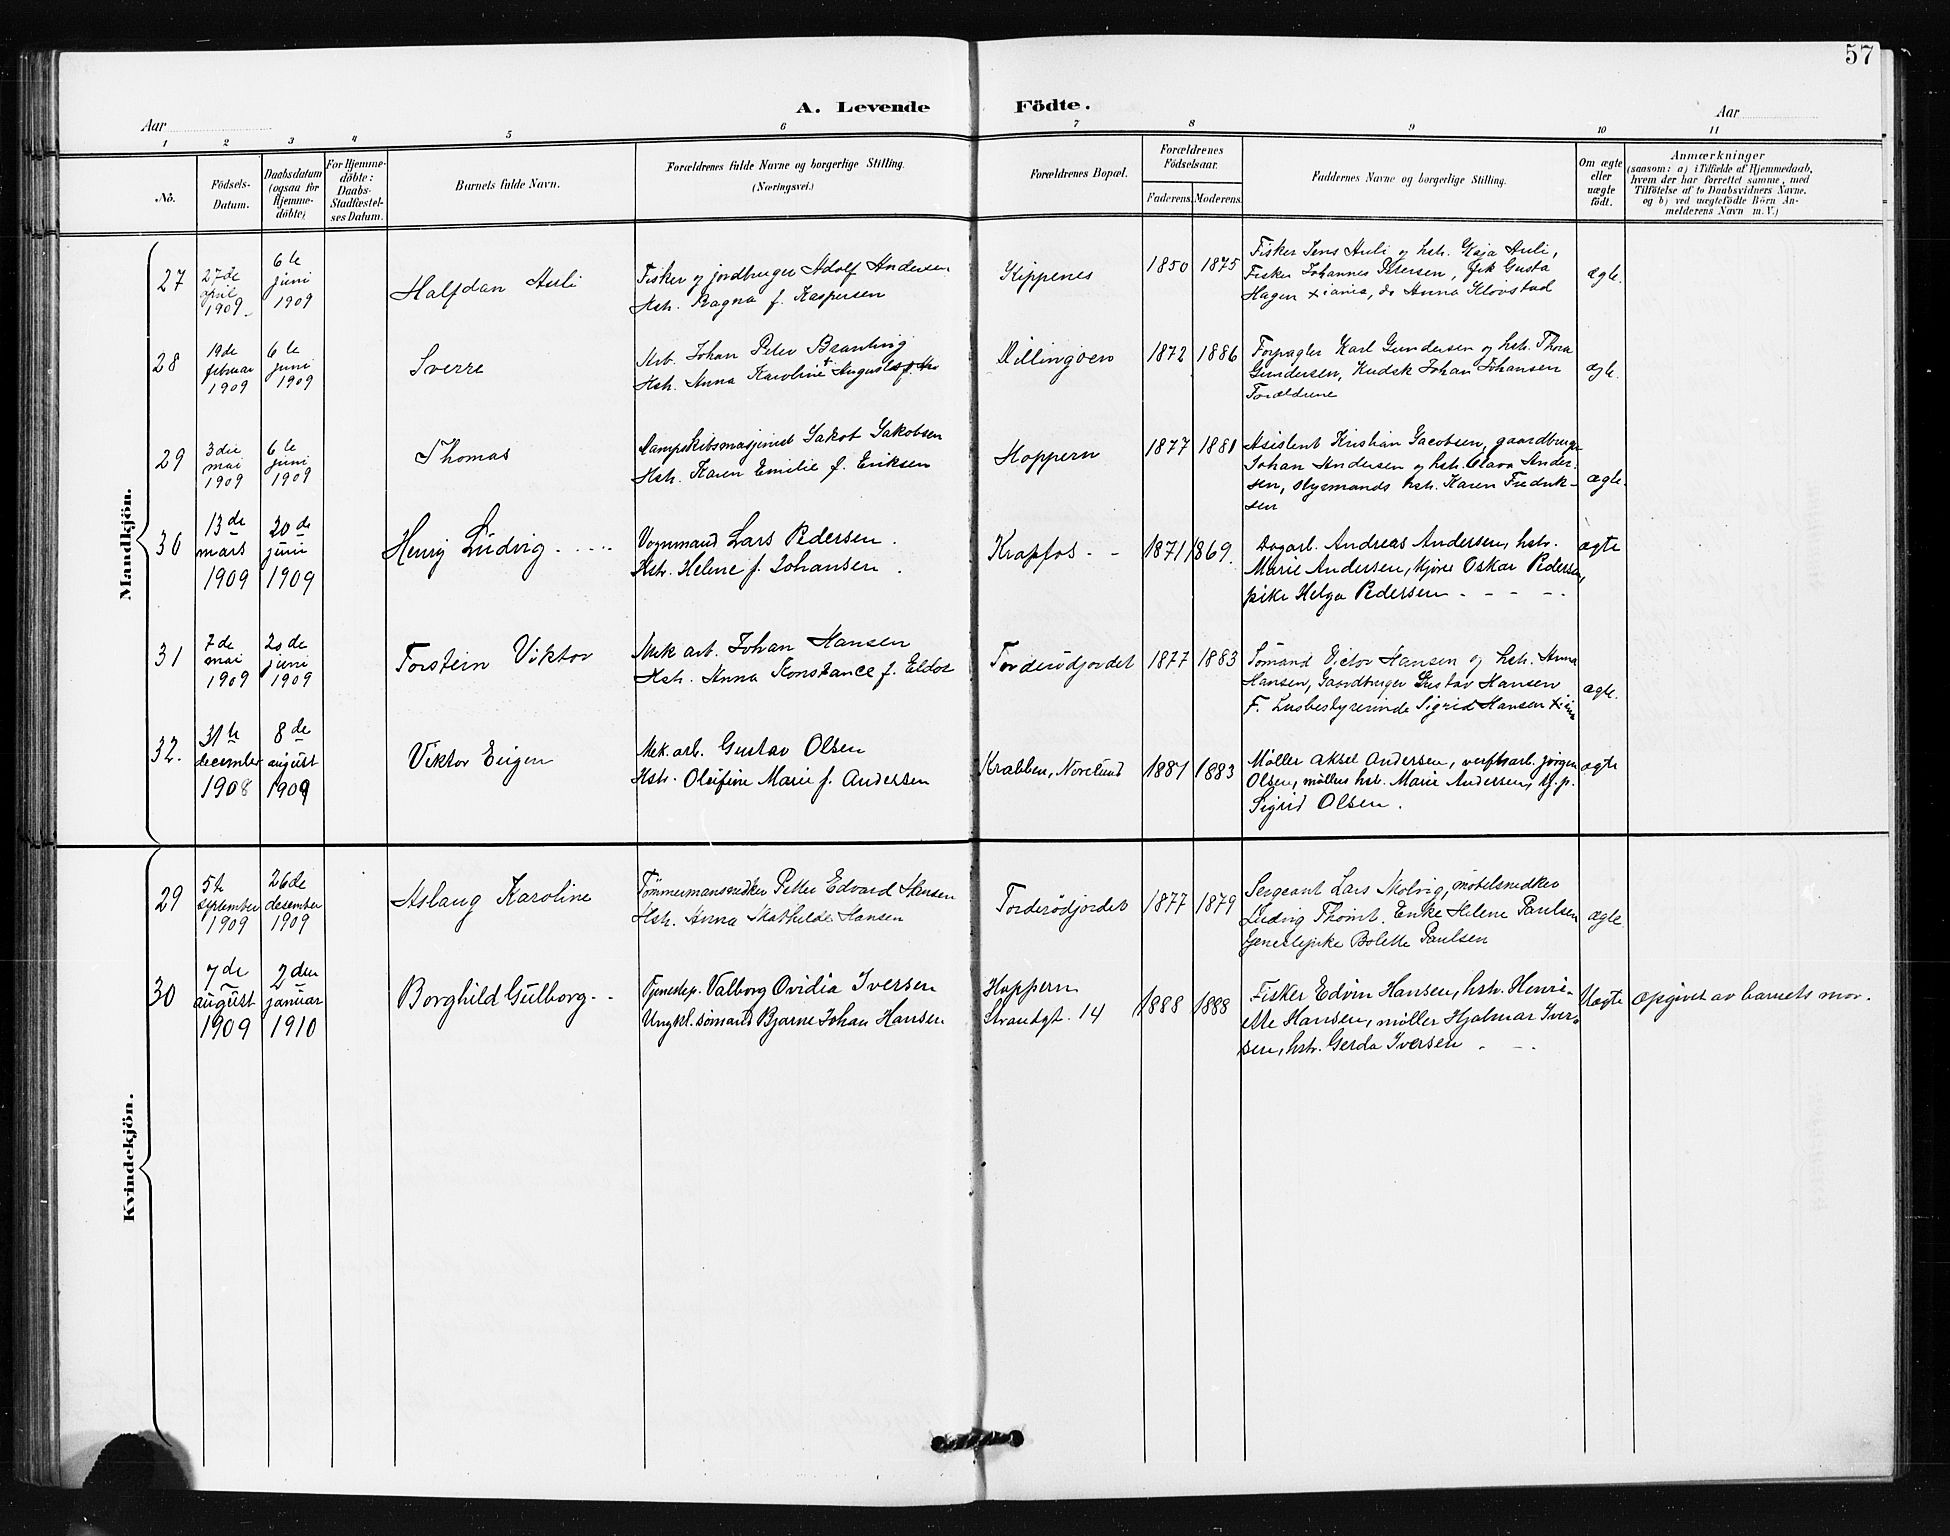 57
A. Levende Födte.
Aar
Aar
1 2 3 4 5 6 7 8 9 10 11
No.
Födsels-
Datum.
Daabsdatum
(ogsaa for
Hjemme-
döbte)
For Hjemme-
döbte:
Daabs-
Stadfæstel-
ses Datum.
Barnets fulde Navn.
Forældrenes fulde Navne og borgerlige Stilling.
(Næringsvei.)
Forældrenes Bopæl.
Forældrenes
Födselsaar.
Faderens. Moderens.
Faddernes Navne og borgerlige Stilling.
Om ægte
eller
uægte
födt.
Anmærkninger
(saasom: a) i Tilfælde af Hjemmedaab,
hvem der har forrettet samme, med
Tilföielse af to Daabsvidners Navne.
og b) ved uægtefödte Börn An-
melderens Navn m. V.)
Mandkjön.
27
27de
april
1909
6te
juni
1909
Halfdan Auli
Fisker og jordbruger Adolf Andersen
Hstr. Ragna f. Kaspersen
Kippenes
1850 1875
Fisker Jens Auli og hstr. Kaja Auli,
Fisker Johannes Petersen, frk Gusta
Hagen Xiania, do Anna Klovstad
ægte.
28
19de
februar
1909
6te
juni
1909
Sverre
Arb. Johan Peter Branting
Hstr. Anna Karoline Augusta
Rillingöen
1872 1886
Forpagter Karl Gundersen og hstr. Thora
Gundersen, Kudsk Johan Johansen
Forældrene
ægte.
29
3die
mai
1909
6te
juni
1909
Thomas
Dampskibsmasjinist Jakob Jakobsen
Hstr. Karen Emilie f. Eriksen
Hoppern
1877 1881
Asistent Kristian Jacobsen, gaardbruger
Johan Andersen og hstr. Clara Ander-
sen, styrmands hstr. Karen Fredrik-
sen
ægte.
30
13de
mars
1909
20de
juni
1909
Henry Ludvig
Vognmand Lars Pedersen.
Hstr. Helene f. Johansen.
Krapfos
1871 1869.
Dagarb. Andreas Andersen, hstr.
Marie Andersen, kjører Oskar Pedersen,
pike Helga Pedersen
ægte
31
7de
mai
1909
20de
juni
1909
Torstein Viktor
Mek arb. Johan Hansen
Hstr. Anna Konstance f. Eldor
Torderödjordet
1877 1883
Sömand Victor Hansen og hstr. Anna
Hansen, Gaardbruger Gustav Hansen
F. Husbestyrerinde Sigrid Hansen
ægte.
32.
31te
december
1908
8de
august
1909
Viktor Eugen
Mek. arb. Gustav Olsen
Hstr. Olefine Marie f. Andersen
Krabben, Norelund
1881 1883
Møller Aksel Andersen, verftsarb. Jörgen
Olsen, møllers hst. Marie Andersen, tj. p.
Sigrid Olsen.
ægte
Kvindekjön.
29
5te
september
1909
26de
desember
1909
Aslaug Karoline
Tømmermansnedker Petter Edvard Hansen
Hstr. Anna Mathilde Hansen
Torderödjordet
1877 1879
Sergeant Lars Molvig, möbelsnedker
Ludvig Thomt. Enke Helene Paulsen
tjenestepike Bolette Paulsen
ægte
30
7de
august
1909
2den
januar
1910
Borghild Gulborg
Tjenestep. Valborg Ovidia Iversen
Ungkl. sømand Bjarne Johan Hansen
Hoppern
Strandgt. 14
1888 1888
Fisker Edvin Hansen, hstr. Henri-
ette Hansen, møller Hjalmar Iver-
sen, hstr. Gerda Iversen
Uægte
Opgivet av barnets mor.